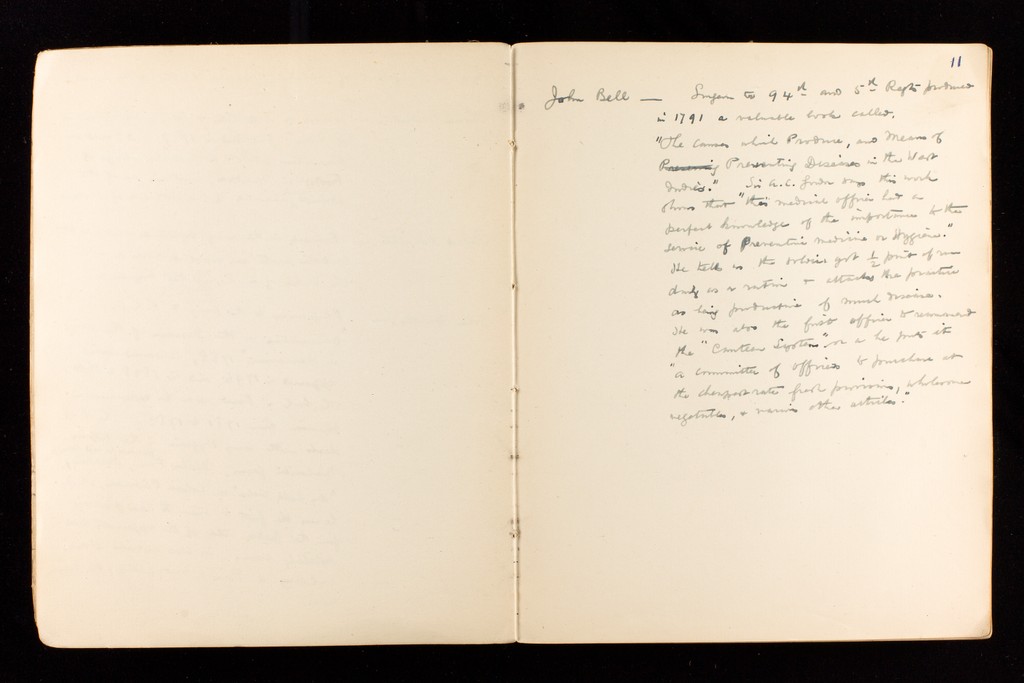 11
John Bell — Surgeon to 94th and 5th Regts produced
in 1791 a valuable book called.
"The Causes which Produce, and Means of
Preventing Diseases in the West
Indies." Sir A.C. says this work
shows that "this medical officer had a
perfect knowledge of the importance to the
service of Preventive medicine or Hygiene."
He tells us the soldier got ½ pint of rum
daily as a ration & attacks the practice
as being productive of much disease.
He was also the first officer to recommend
the "Canteen System" or as he puts it
"a committee of officers to purchase at
the cheapest rate fresh provisions, wholesome
vegetables, & various other articles."